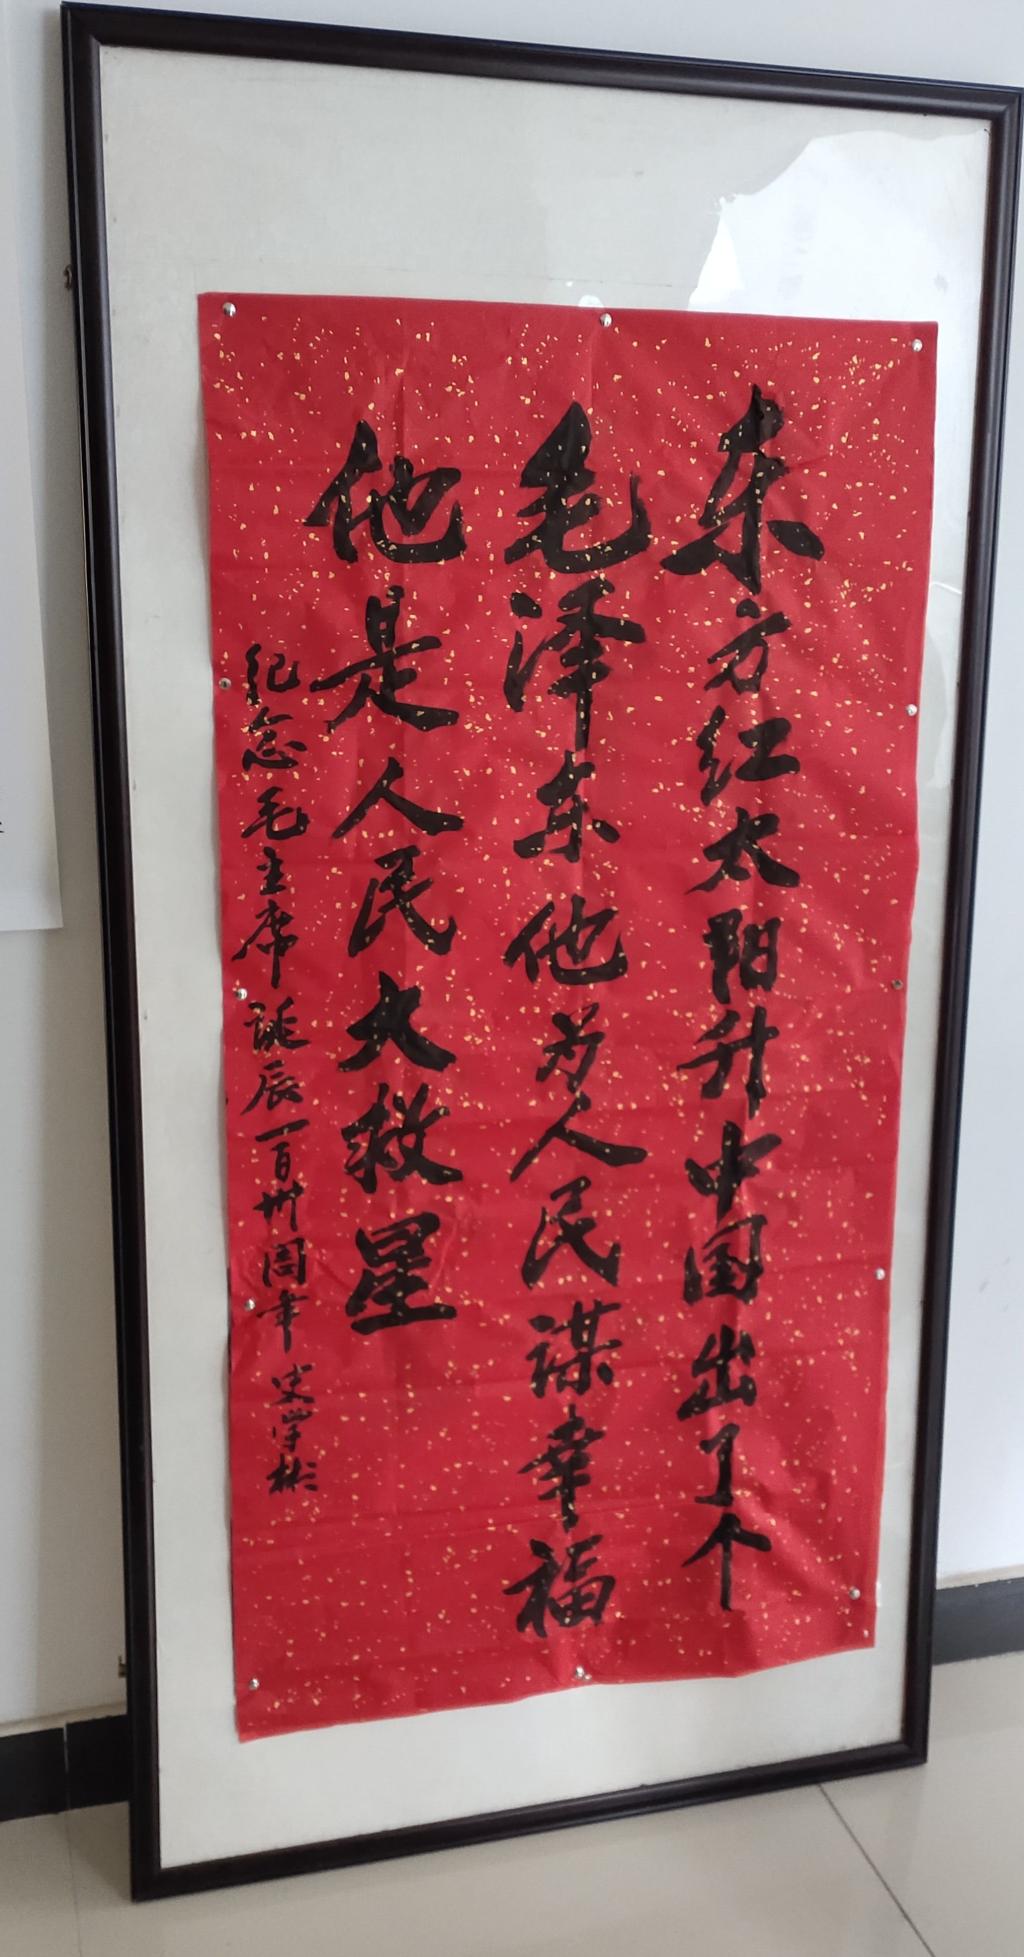 东方红太阳升中国出了个
毛泽东他为人民谋幸福
他是人民大救星
纪念毛主席诞辰一百卅周年